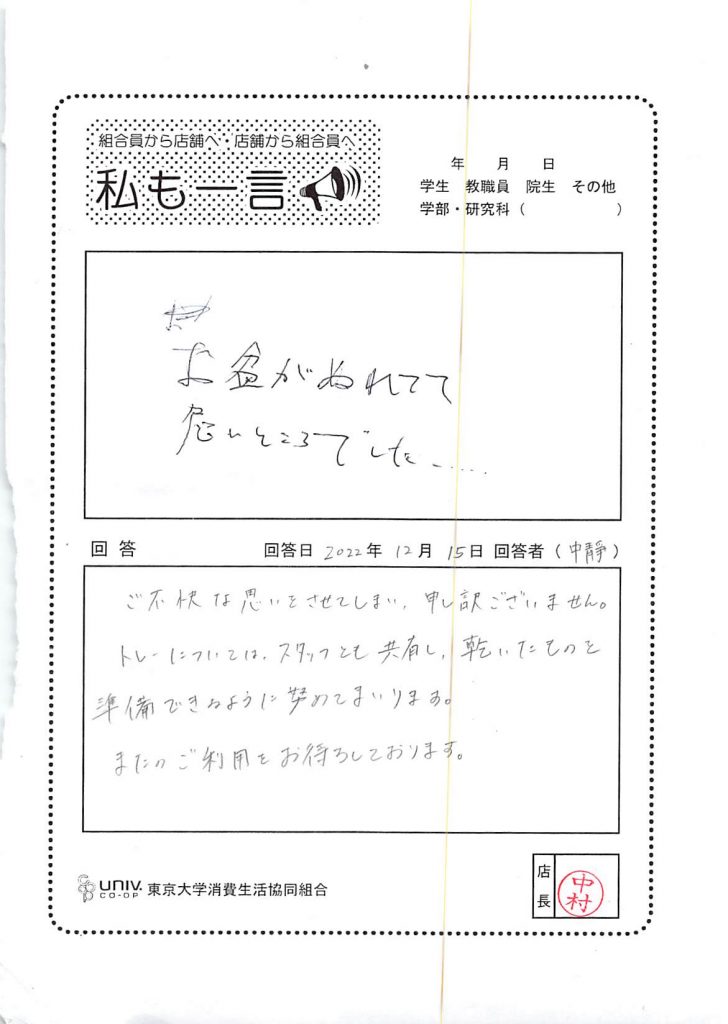 組合員から店舗へ・店舗から組合員へ
私も一言
年 月 日
学生 教職員 院生 その他
学部・研究科( )
お盆がぬれてて
危いところでした......
回答 回答日 2022年 12月 15日 回答者(中靜)
ご不快な思いをさせてしまい、申し訳ございません。
トレーについては、スタッフとも共有し、乾いたものを
準備できるように努めてまいります。
またのご利用をお待ちしております。
店長
中村
UNIV. CO-OP 東京大学消費生活協同組合